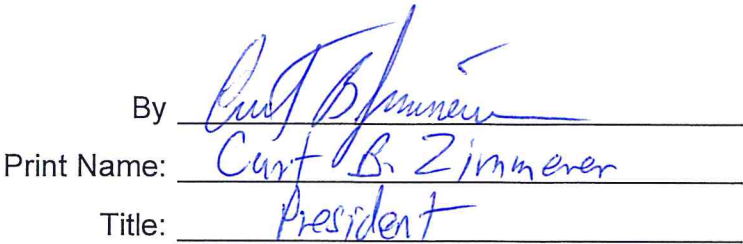 By Curt B Zimmerer
Print Name: Curt B. Zimmerer
Title: President